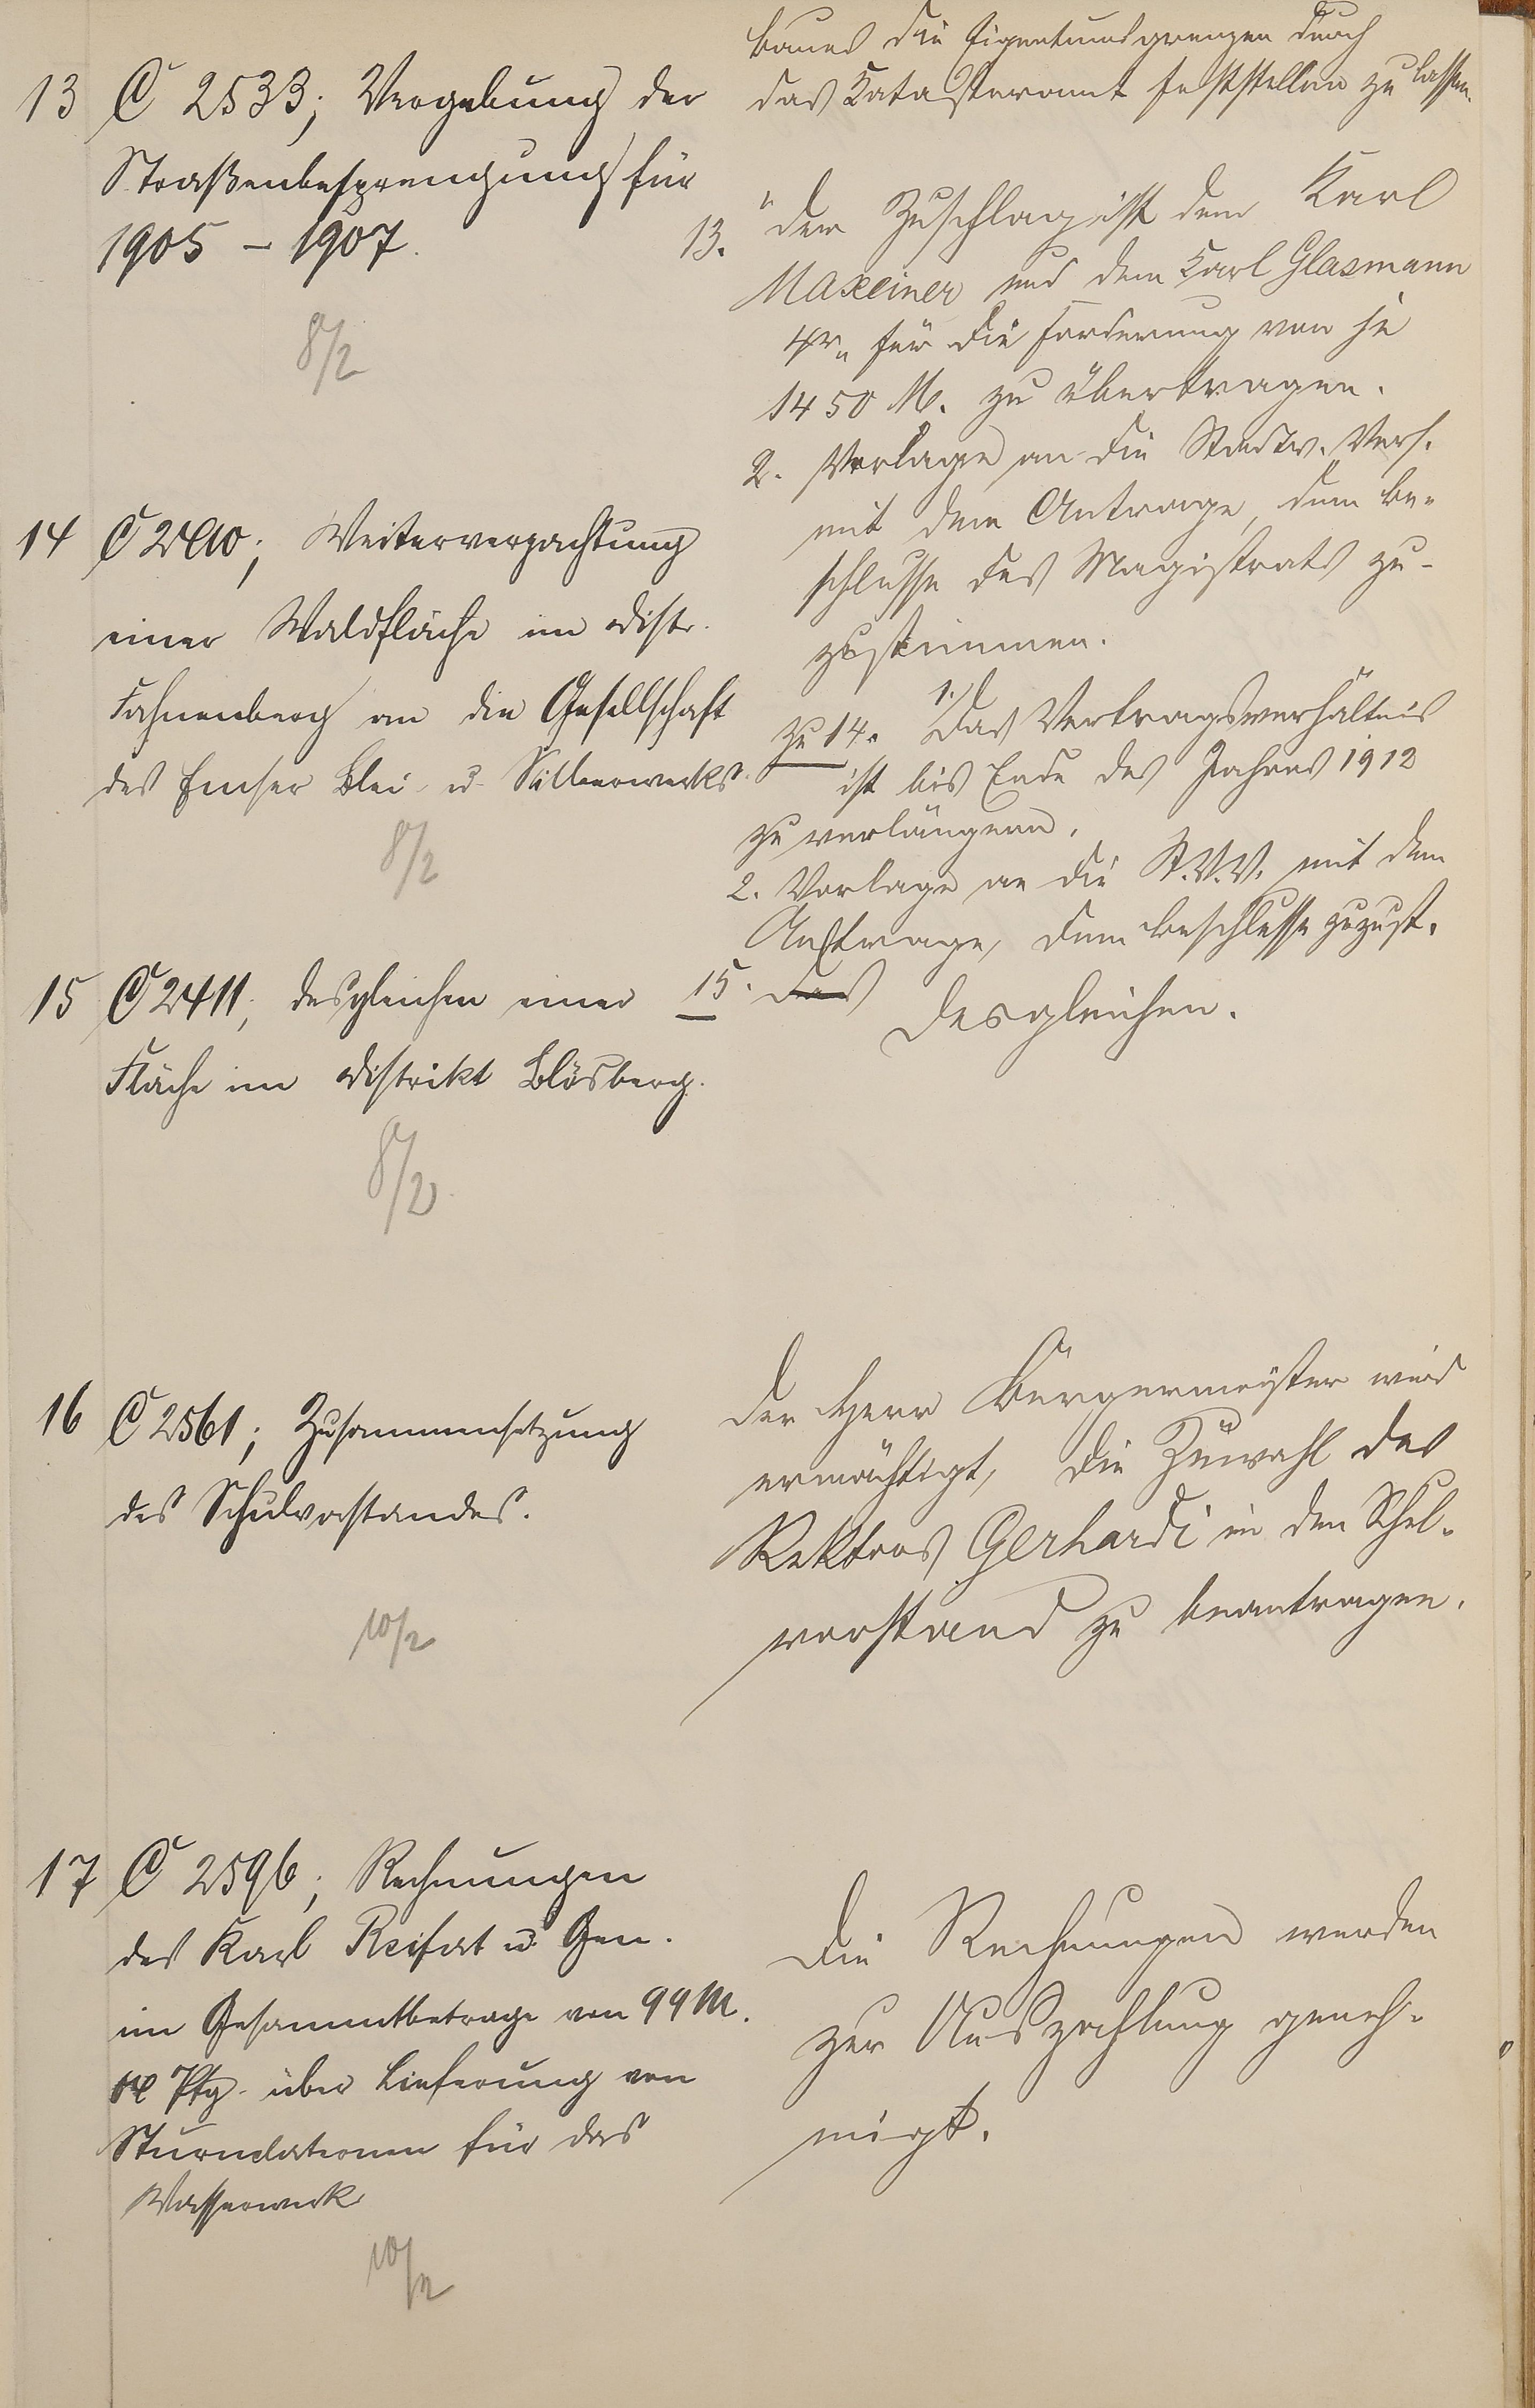 baues die Eigentumsgrenzen durch
das Katasteramt feststellen zu lassen.
13 C 2533; Vergebung der
Straßenbesprengung für
1905 – 1907.
8/2
13. der Zuschlag ist dem Karl
Maxeiner und dem Karl Glasmann
für die Forderung von je
1450 M. zu übertragen.
2. Vorlage an die Stadtv. Vers.
mit dem Antrage, dem Be-
schlusse des Magistrats zu-
zustimmen.
14 C 2410; Weiterverpachtung
einer Waldfläche im Distr.
Fahnenberg an die Gesellschaft
des Emser Blei- u. Silberwerks.
8/2
zu 14. 1. Das Vertragsverhältnis
ist bis Ende des Jahres 1912
zu verlängern.
2. Vorlage an die St.V.V. mit dem
Antrage, dem Beschlusse zuzust.
15 C 2411; desgleichen einer
Fläche im Distrikt Bläsberg.
8/2
15. das desgleichen.
16 C 2561; Zusammensetzung
des Schulvorstandes.
10/2
der Herr Bürgermeister wird
ermächtigt, die Zuwahl des
Rektors Gerhardi in den Schul-
vorstand zu beantragen.
17 C 2596; Rechnungen
des Karl Reifert u. Gen.
im Gesammtbetrage von 99 M.
Pfg. über Lieferung von
Sturmlaternen für das
Wasserwerk
10/2
die Rechnungen werden
zur Auszahlung geneh-
migt.